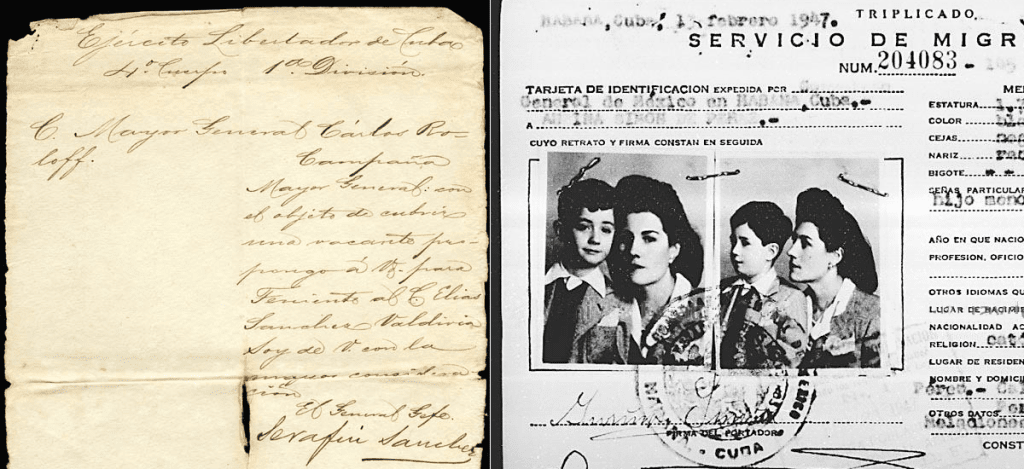 Ejército Libertador de Cuba
4º Cuerpo 1ª División.
C. Mayor General Cárlos Ro-
loff.
Campaña
Mayor General: con
el objeto de cubrir
una vacante pro-
pongo á V. para
Teniente al C. Elias
Sanchez Valdivia
Soy de V. con la
mayor considera-
ción
El General Gefe
Serafin Sanchez
HABANA, Cuba, 13 febrero 1947.
TRIPLICADO.
SERVICIO DE MIGR
NUM. 204083 -
TARJETA DE IDENTIFICACION EXPEDIDA POR
General de México en HABANA, Cuba.-
A SIMON DE PEREZ.-
CUYO RETRATO Y FIRMA CONSTAN EN SEGUIDA
FIRMA DEL PORTADOR
MEXICO
CUBA
ME
ESTATURA 1.
COLOR
CEJAS
NARIZ
BIGOTE
SEÑAS PARTICULAR
hijo meno
AÑO EN QUE NACIO
PROFESION, OFICIO
OTROS IDIOMAS QU
LUGAR DE NACIMI
NACIONALIDAD AC
RELIGION cat
LUGAR DE RESIDEN
Perez.- Ca
NOMBRE Y DOMICI
OTROS DATOS
Relaciones
CONST